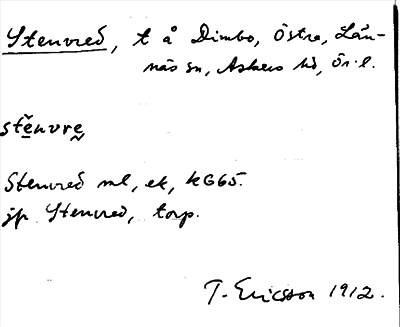 Stenvred, t å Dimbo, Östra, Län-
näs sn, Askers hd, Ör. l.
stĕnvre
Stenvred ml, ek, kG65.
jfr Stenvred, torp.
T. Ericsson 1912.